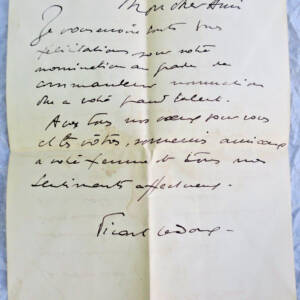 Mon cher Ami
Je vous envoie toutes mes
félicitations pour votre
nomination au grade de
commandeur nomination
due a votre grand talent.
Avec tous nos vœux pour vous
et les vôtres, amicaux
a votre femme et tous nos
sentiments affectueux.
Picart Ledoux